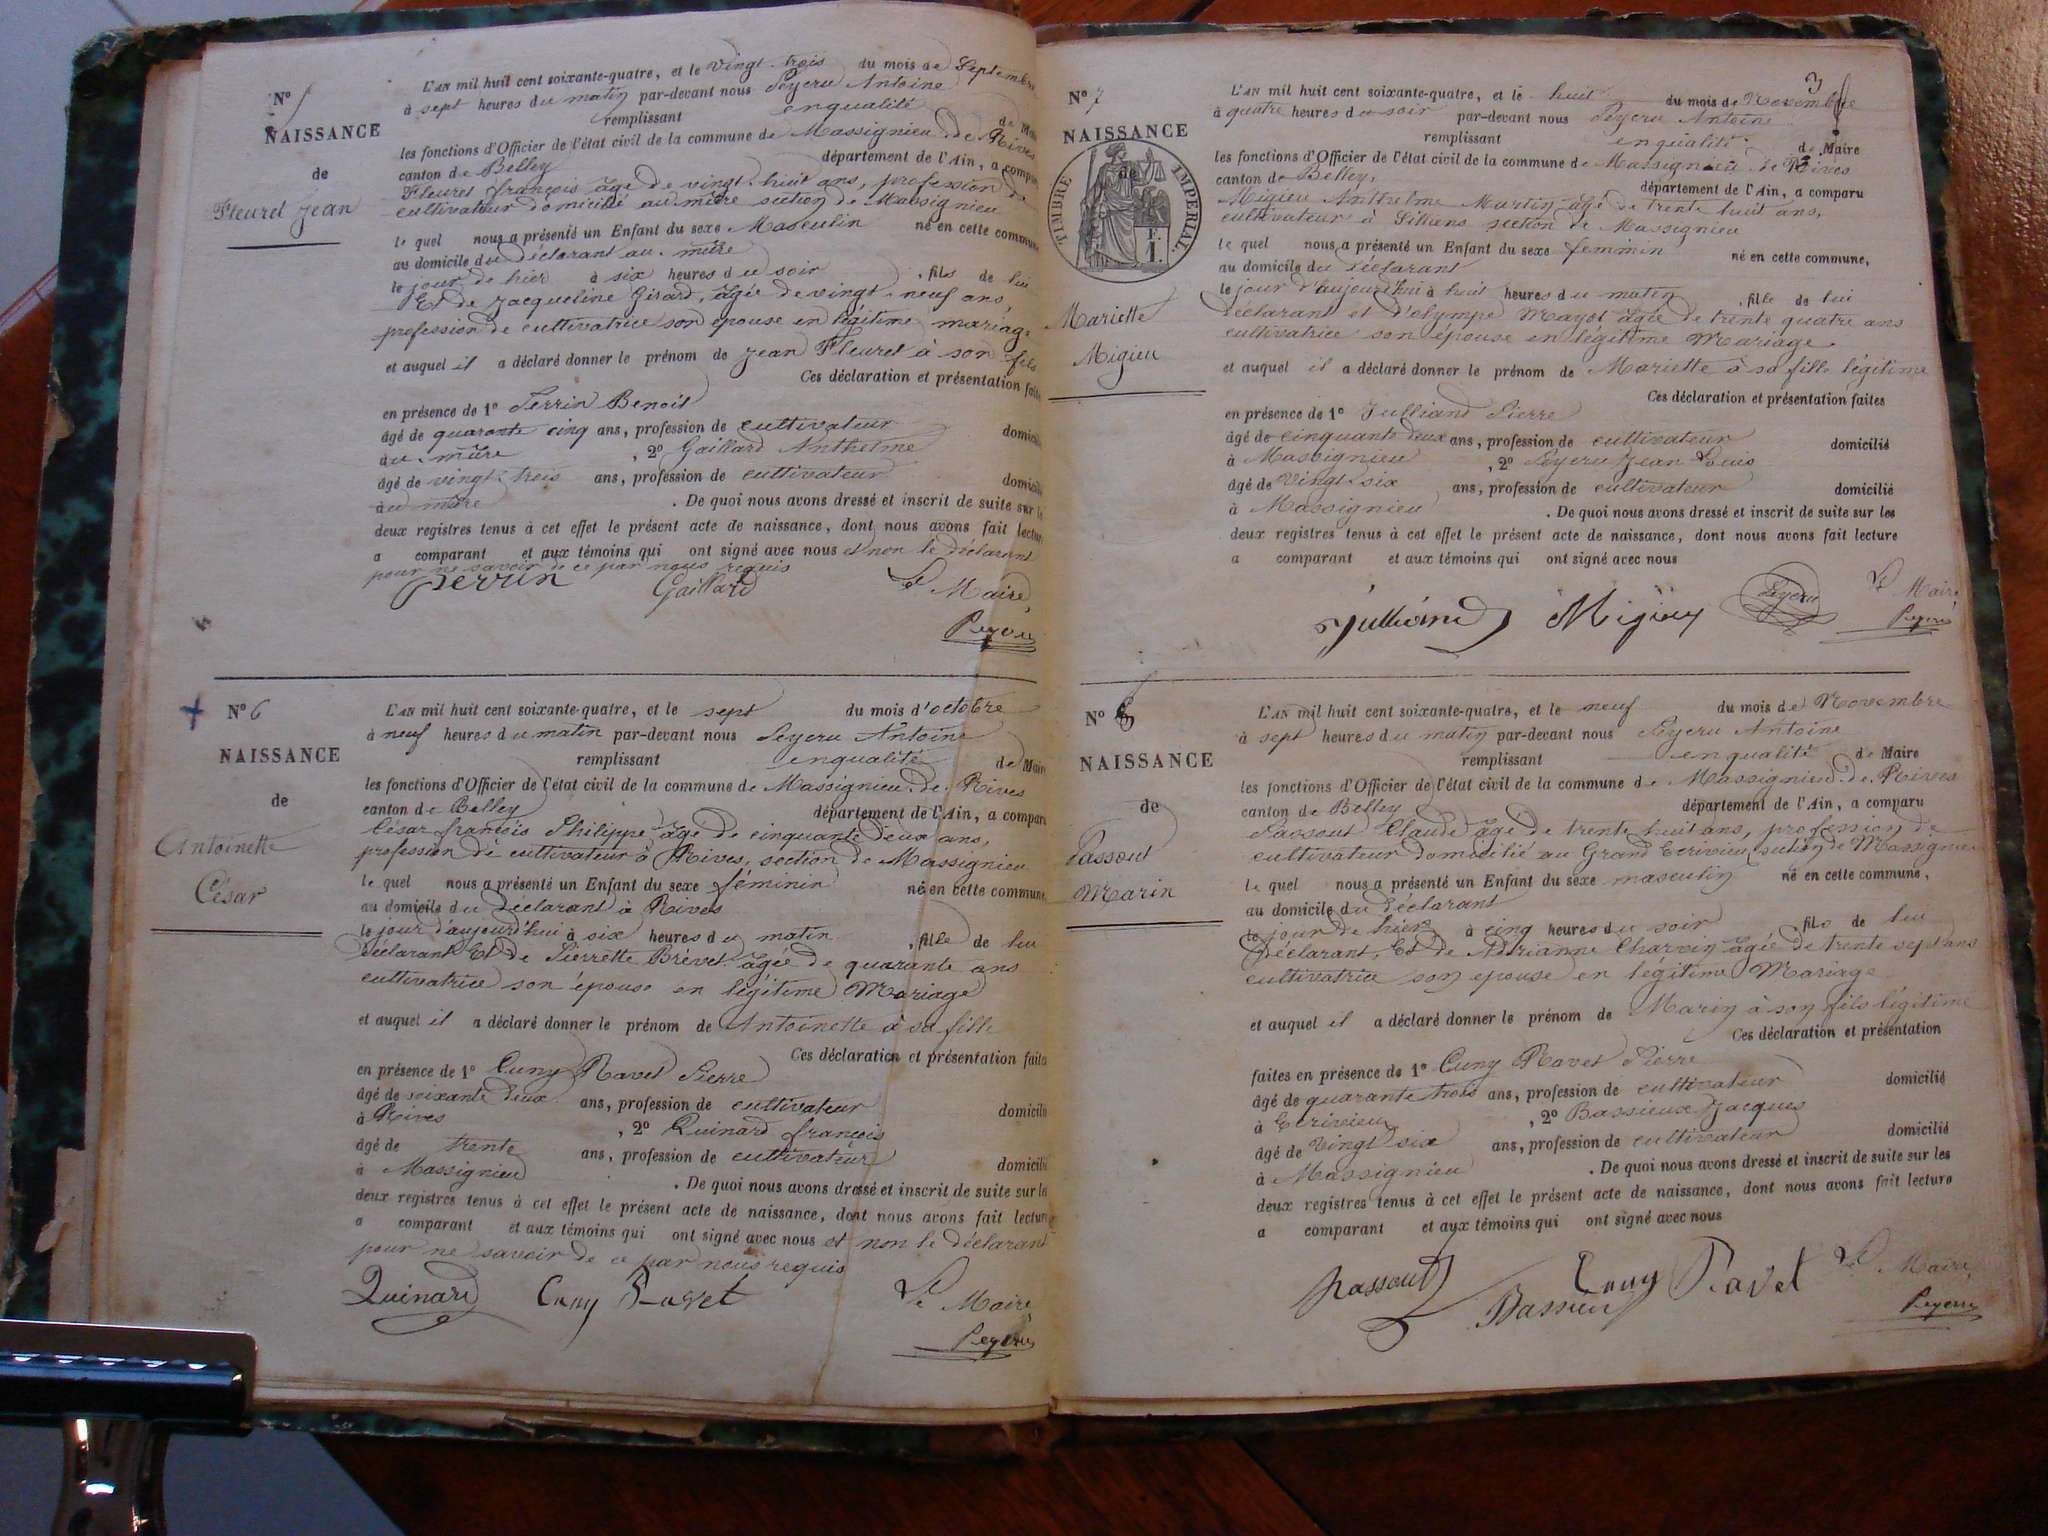 N° 5
NAISSANCE
de
Fleuret Jean
L'AN mil huit cent soixante-quatre, et le vingt-trois du mois de Septembre
à sept heures du matin par-devant nous Peyeru Antoine
remplissant enqualité de Mai
les fonctions d'Officier de l'état civil de la commune de Massignieu de Rives
canton de Belley département de l'Ain, a compar
Fleuret françois âgé de vingt-huit ans, profession de
cultivateur domicilié au mûre section de Massignieu
le quel nous a présenté un Enfant du sexe Masculin né en cette commune
au domicile du déclarant au mûre
le jour de hier à six heures du soir , fils de lui
Et de Jacqueline Girard, âgée de vingt-neuf ans,
profession de cultivatrice son épouse en légitime mariage
et auquel il a déclaré donner le prénom de Jean Fleuret à son fils
Ces déclaration et présentation faites
en présence de 1° Perrin Benoit
âgé de quarante cinq ans, profession de cultivateur domicilié
au mûre , 2° Gaillard Anthelme
âgé de vingt-trois ans, profession de cultivateur domicilié
au mûre . De quoi nous avons dressé et inscrit de suite sur les
deux registres tenus à cet effet le présent acte de naissance, dont nous avons fait lecture
a comparant et aux témoins qui ont signé avec nous et non le déclarant
pour ne savoir de ce par nous requis
Perrin Gaillard Le Maire,
Peyeru
N° 6
NAISSANCE
de
Antoinette
César
L'AN mil huit cent soixante-quatre, et le sept du mois d'octobre
à neuf heures du matin par-devant nous Peyeru Antoine
remplissant enqualité de Maire
les fonctions d'Officier de l'état civil de la commune de Massignieu de Rives
canton de Belley département de l'Ain, a comparu
César françois Philippe âgé de cinquante deux ans,
profession de cultivateur à Rives, section de Massignieu
le quel nous a présenté un Enfant du sexe féminin né en cette commune,
au domicile du déclarant à Rives
le jour d'aujourd'hui à six heures du matin , fille de lui
déclarant Et de Pierrette Brévet âgée de quarante ans
cultivatrice son épouse en légitime Mariage
et auquel il a déclaré donner le prénom de Antoinette à sa fille
Ces déclaration et présentation faites
en présence de 1° Cuny Ravet Pierre
âgé de soixante deux ans, profession de cultivateur domicilié
à Rives , 2° Quinard françois
âgé de trente ans, profession de cultivateur domicilié
à Massignieu . De quoi nous avons dressé et inscrit de suite sur les
deux registres tenus à cet effet le présent acte de naissance, dont nous avons fait lecture
a comparant et aux témoins qui ont signé avec nous et non le déclarant
pour ne savoir de ce par nous requis
Quinard Cuny Ravet Le Maire,
Peyeru
3
N° 7
NAISSANCE
de
TIMBRE IMPERIAL
F.
1.
Mariette
Migieu
L'AN mil huit cent soixante-quatre, et le huit du mois de Novembre
à quatre heures du soir par-devant nous Peyeru Antoine
remplissant enqualité de Maire
les fonctions d'Officier de l'état civil de la commune de Massignieu de Rives
canton de Belley, département de l'Ain, a comparu
Migieu Anthelme Martin âgé de trente huit ans,
cultivateur à Lilliens section de Massignieu
le quel nous a présenté un Enfant du sexe feminin né en cette commune,
au domicile du déclarant
le jour d'aujourd'hui à huit heures du matin , fille de lui
déclarant et d'olympe Mayot âgée de trente quatre ans
cultivatrice son épouse en légitime Mariage
et auquel il a déclaré donner le prénom de Mariette à sa fille légitime
Ces déclaration et présentation faites
en présence de 1° Julliand Pierre
âgé de cinquante deux ans, profession de cultivateur domicilié
à Massignieu , 2° Peyeru Jean Louis
âgé de Vingt-six ans, profession de cultivateur domicilié
à Massignieu . De quoi nous avons dressé et inscrit de suite sur les
deux registres tenus à cet effet le présent acte de naissance, dont nous avons fait lecture
a comparant et aux témoins qui ont signé avec nous
Julliand Migieu Peyeru Le Maire
Peyeru
N° 8
NAISSANCE
de
Passout
Marin
L'AN mil huit cent soixante-quatre, et le neuf du mois de Novembre
à sept heures du matin par-devant nous Peyeru Antoine
remplissant enqualité de Maire
les fonctions d'Officier de l'état civil de la commune de Massignieu de Rives
canton de Belley département de l'Ain, a comparu
Passout Claude âgé de trente huit ans, profession de
cultivateur domicilié au Grand Ecrivieu section de Massignieu
le quel nous a présenté un Enfant du sexe masculin né en cette commune,
au domicile du déclarant
le jour de hier à cinq heures du soir fils de lui
Déclarant, Et de Adrianne Charvin âgée de trente sept ans
cultivatrice son epouse en légitime Mariage
et auquel il a déclaré donner le prénom de Marin à son fils légitime
Ces déclaration et présentation
faites en présence de 1° Cuny Ravet Pierre
âgé de quarante trois ans, profession de cultivateur domicilié
à Ecrivieu , 2° Bassieux Jacques
âgé de Vingt six ans, profession de cultivateur domicilié
à Massignieu . De quoi nous avons dressé et inscrit de suite sur les
deux registres tenus à cet effet le présent acte de naissance, dont nous avons fait lecture
a comparant et aux témoins qui ont signé avec nous
Passout Bassieu Cuny Ravet Le Maire,
Peyeru